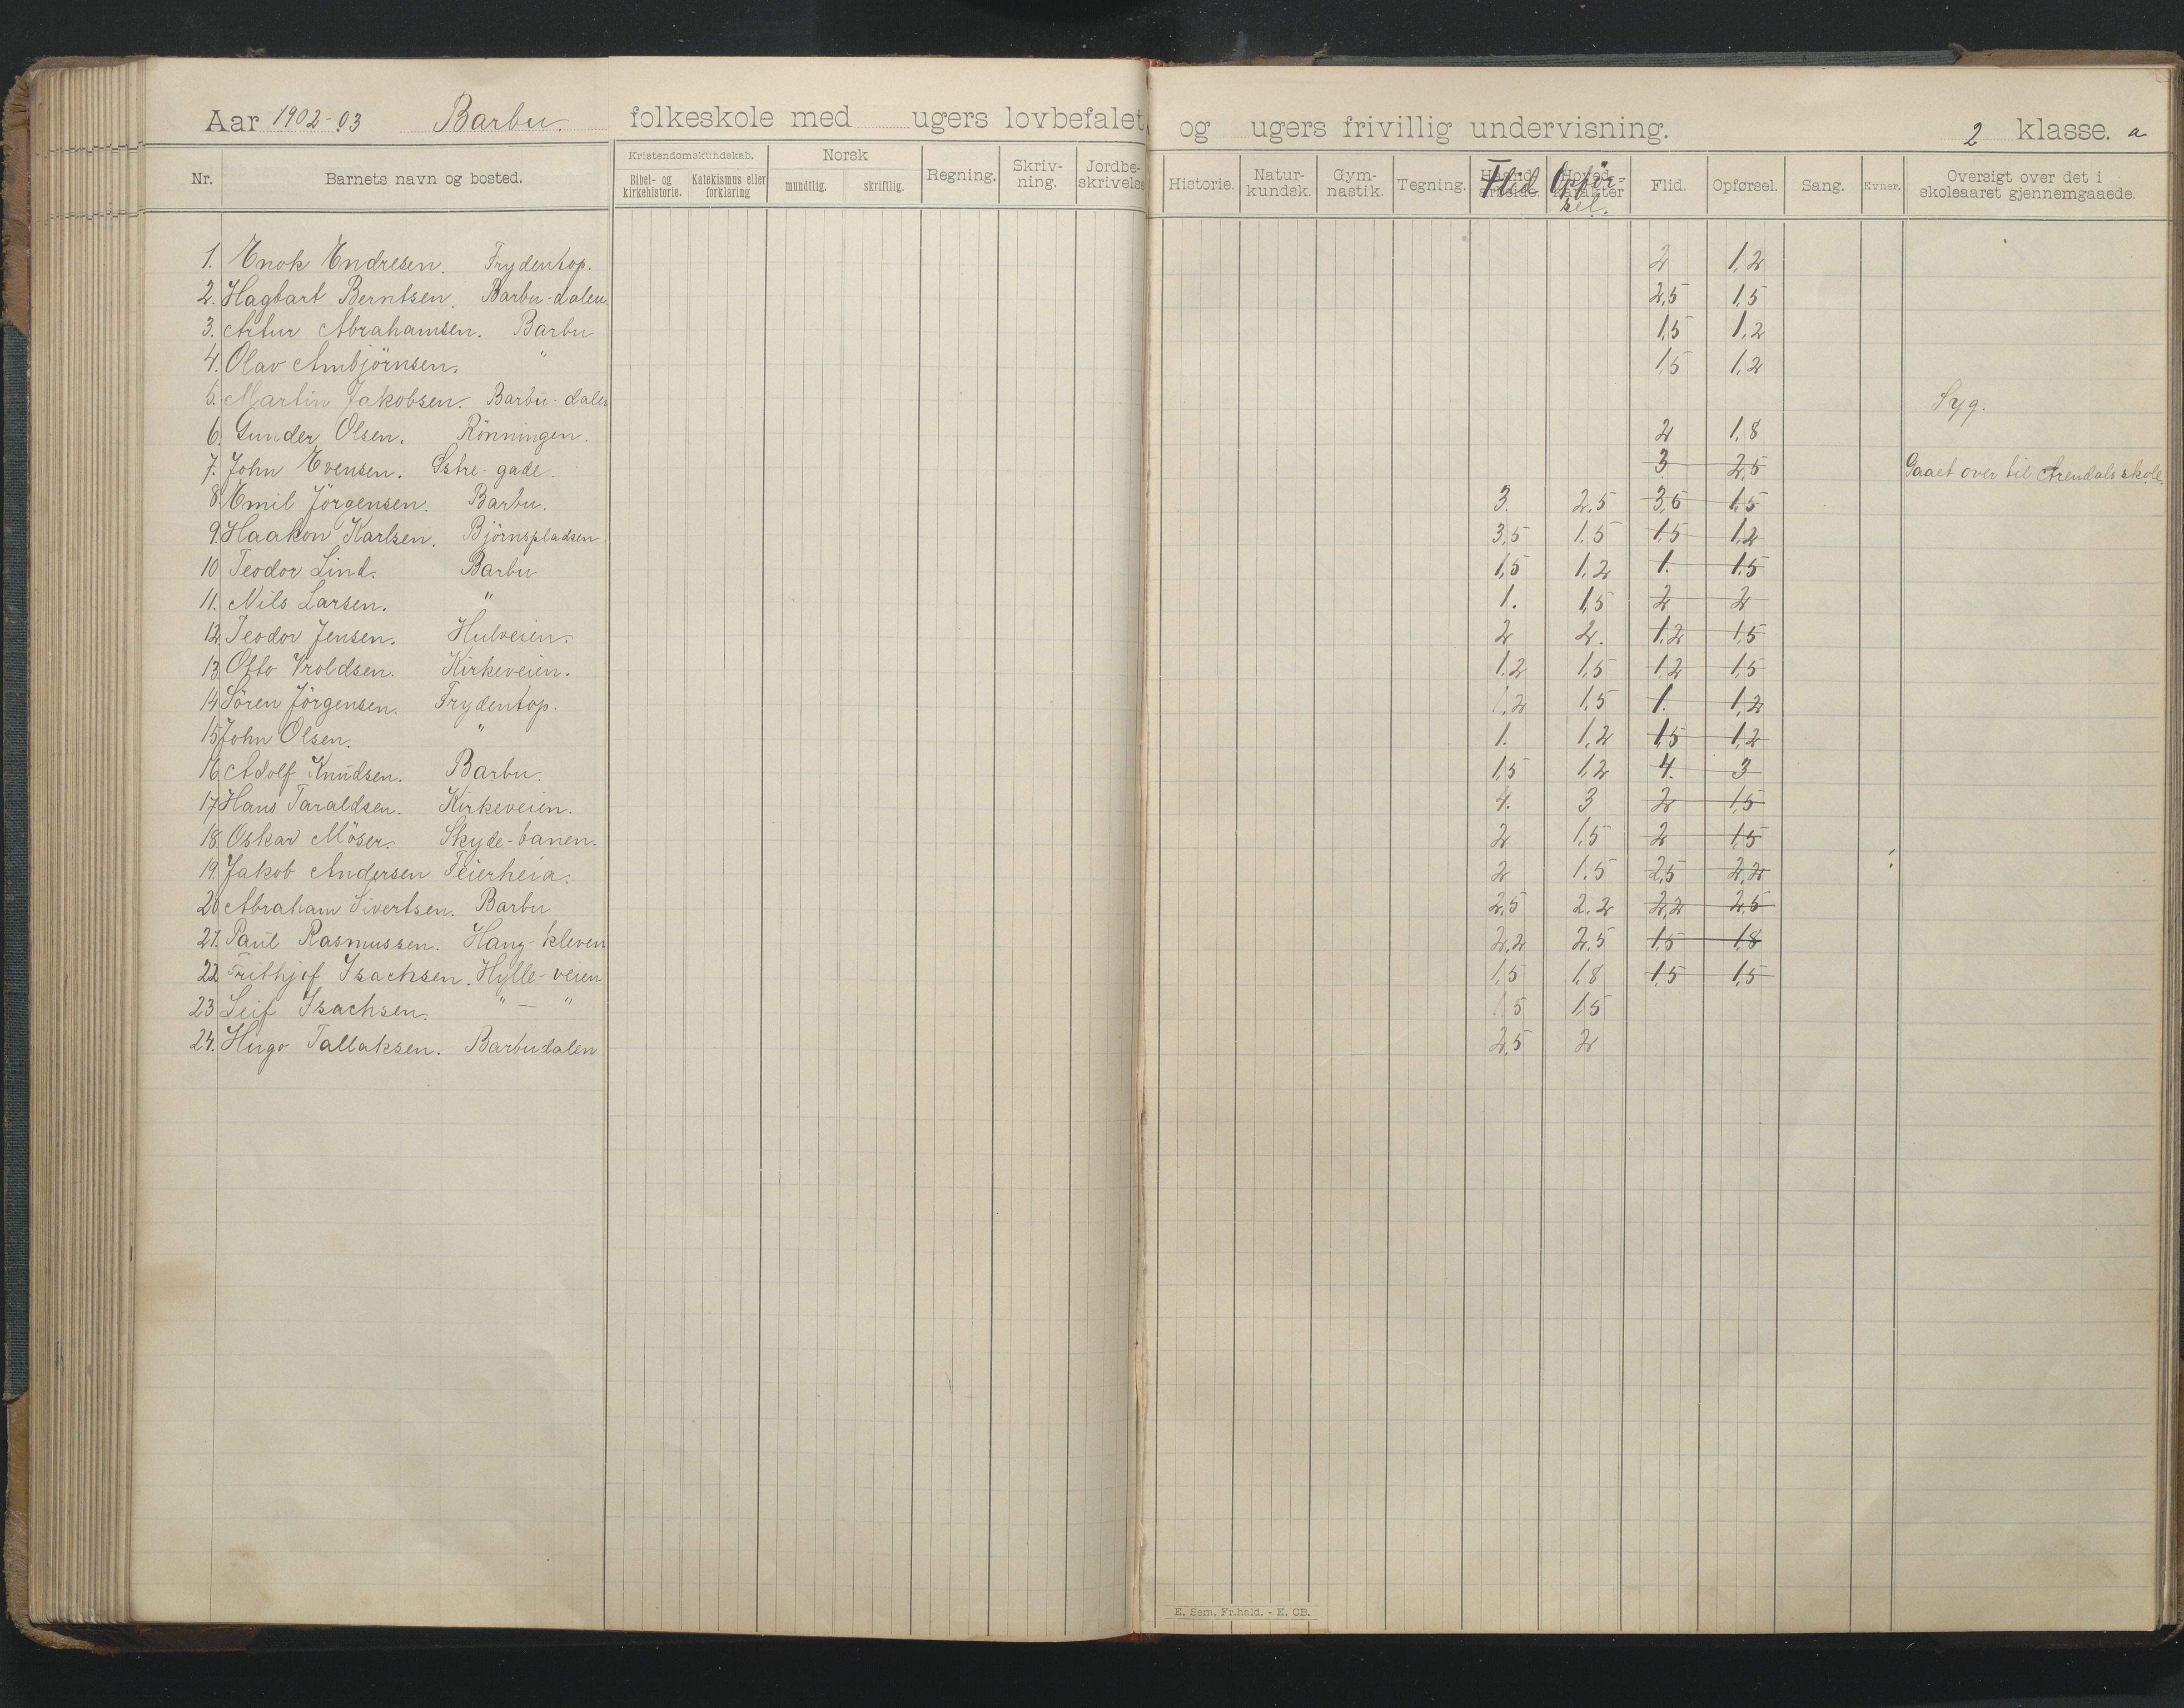 Aar 1902-03 Barbu. folkeskole med ugers lovbefalet, og ugers frivillig undervisning. 2 klasse. a
Nr. Barnets navn og bosted. Kristendomskundskab. Bibel- og kirkehistorie. Katekismus eller forklaring Norsk mundtlig. skriftlig. Regning. Skriv-ning. Jordbe-skrivelse Historie. Natur-kundsk. Gym-nastik. Tegning. Flid Opför=sel. Flid. Opførsel. Sang. Evner. Oversigt over det i skoleaaret gjennemgaaede.
1. Enok Endresen. Frydentop. 2 1,2
2. Hagbart Berntsen. Barbu-dalen 2,5 1,5
3. Artur Abrahamsen. Barbu 1,5 1,2
4. Olav Ambjörnsen. " 1,5 1,2
5. Martin Jakobsen. Barbu-dalen Syg.
6. Gunder Olsen. Rönningen. 2 1,8
7. John Evensen. Östre-gade. 3 2,5 Gaaet over til Arendals skole.
8. Emil Jörgensen. Barbu. 3. 2,5 3,5 1,5
9. Haakon Karlsen. Björnspladsen 3,5 1,5 1,5 1,2
10 Teodor Lind. Barbu 1,5 1,2 1. 1,5
11. Nils Larsen. " 1. 1,5 2 2
12. Teodor Jensen. Hulveien. 2 2. 1,2 1,5
13. Otto Vroldsen. Kirkeveien. 1,2 1,5 1,2 1,5
14 Sören Jörgensen. Frydentop. 1,2 1,5 1. 1,2
15 John Olsen. " 1. 1,2 1,5 1,2
16. Adolf Knudsen. Barbu. 1,5 1,2 4. 3
17. Hans Taraldsen. Kirkeveien. 4. 3 2 1,5
18. Oskar Möser. Skyde-banen. 2 1,5 2 1,5
19. Jakob Andersen Feierheia. 2 1,5 2,5 2,2
20 Abraham Sivertsen. Barbu 2,5 2,2 2,2 2,5
21. Paul Rasmussen. Hang-kleven 2,2 2,5 1,5 1,8
22 Frithjof Isachsen. Hylle-veien 1,5 1,8 1,5 1,5
23 Leif Isachsen. " — " 1,5 1,5
24. Hugo Tallaksen. Barbudalen 2,5 2
E. Sem, Fr.hald. - E. CB.